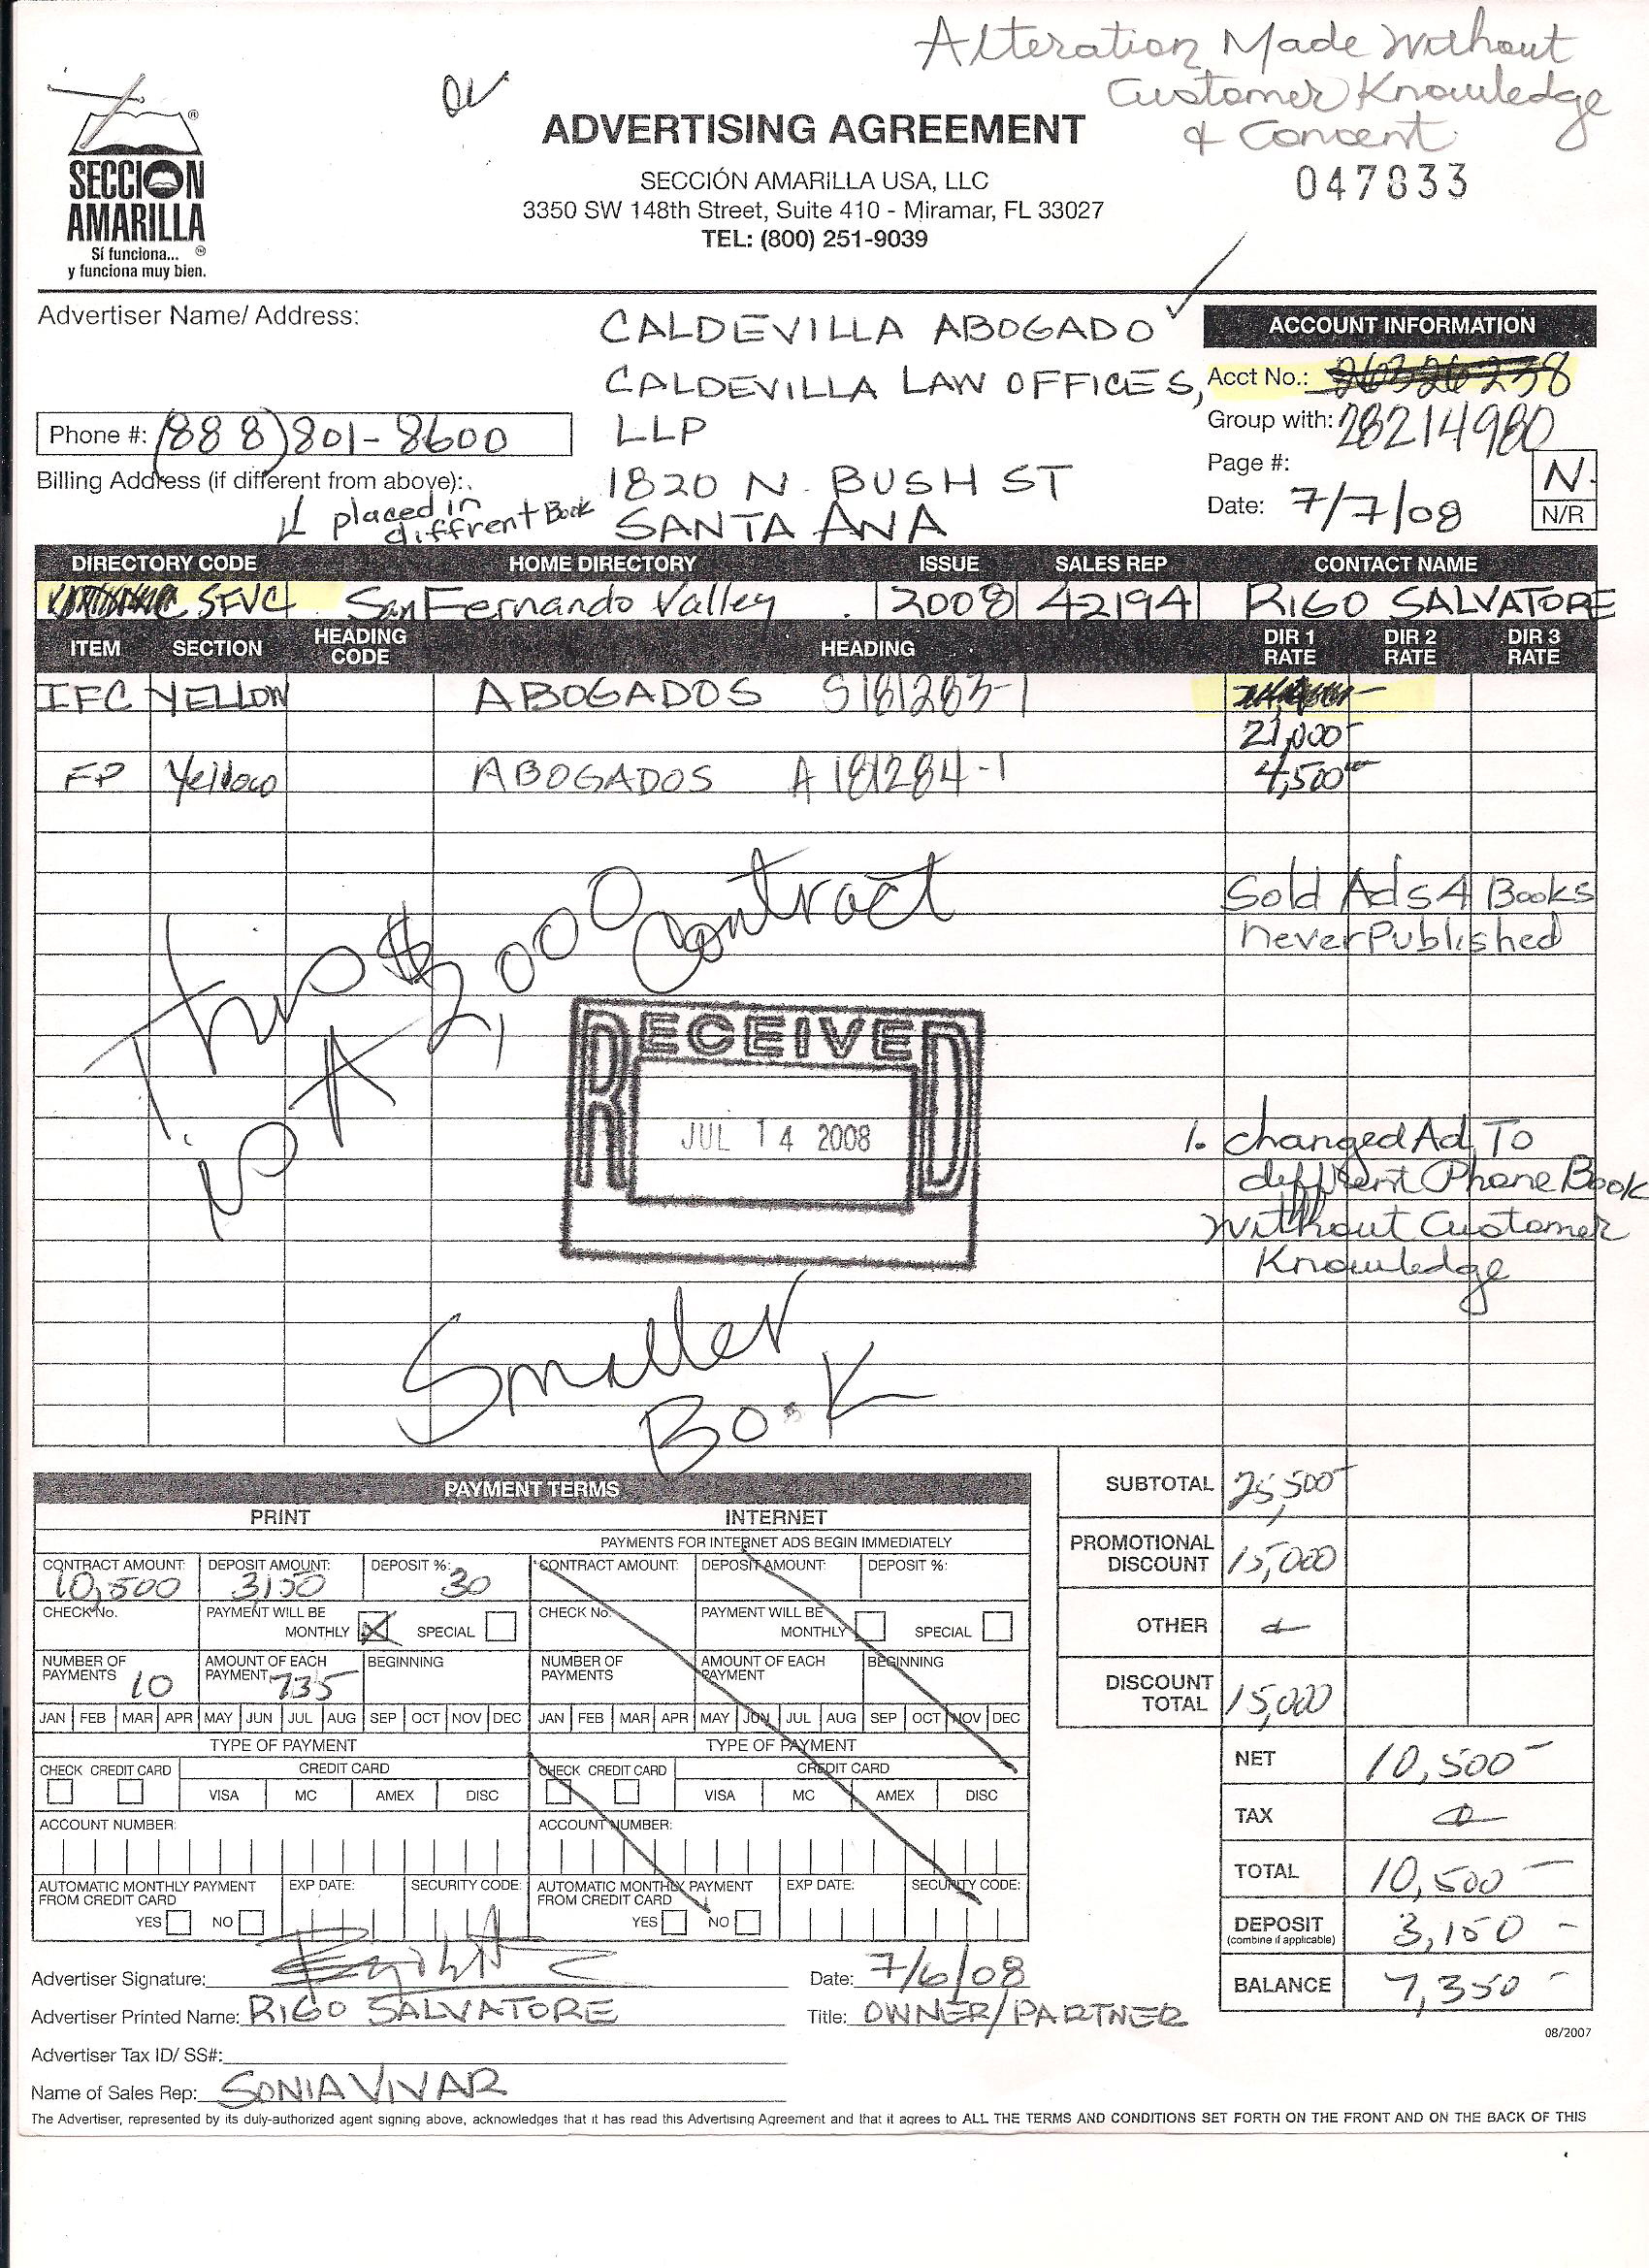 Alteration Made Without
Customer Knowledge
& Concent
047833
SECCION
AMARILLA
Sí funciona...
y funciona muy bien.
ADVERTISING AGREEMENT
SECCIÓN AMARILLA USA, LLC
3350 SW 148th Street, Suite 410 - Miramar, FL 33027
TEL: (800) 251-9039
Advertiser Name/ Address:
CALDEVILLA ABOGADO
CALDEVILLA LAW OFFICES,
LLP
1820 N. BUSH ST
SANTA ANA
Phone #: (888)801-8600
Billing Address (if different from above):
placed in
diffrent Book
ACCOUNT INFORMATION
Acct No.: 26326238
Group with: 28214980
Page #:
Date: 7/7/08
N.
N/R
DIRECTORY CODE HOME DIRECTORY ISSUE SALES REP CONTACT NAME
SFVC San Fernando Valley 2008 42194 RIGO SALVATORE
ITEM SECTION HEADING CODE HEADING DIR 1 RATE DIR 2 RATE DIR 3 RATE
IFC YELLOW ABOGADOS S181283-1
21,000-
FP Yellow ABOGADOS A181284-1 4,500
Sold Ads 4 Books
never Published
This
is A $2,000 Contract
RECEIVED
JUL 14 2008
1. changed Ad To
different Phone Book
Without Customer
Knowledge
Smaller
Book
PAYMENT TERMS
PRINT INTERNET
PAYMENTS FOR INTERNET ADS BEGIN IMMEDIATELY
CONTRACT AMOUNT: 10,500 DEPOSIT AMOUNT: 3150 DEPOSIT %: 30 CONTRACT AMOUNT: DEPOSIT AMOUNT: DEPOSIT %:
CHECK No. PAYMENT WILL BE MONTHLY SPECIAL CHECK No. PAYMENT WILL BE MONTHLY SPECIAL
NUMBER OF PAYMENTS 10 AMOUNT OF EACH PAYMENT 735 BEGINNING NUMBER OF PAYMENTS AMOUNT OF EACH PAYMENT BEGINNING
JAN FEB MAR APR MAY JUN JUL AUG SEP OCT NOV DEC JAN FEB MAR APR MAY JUN JUL AUG SEP OCT NOV DEC
TYPE OF PAYMENT TYPE OF PAYMENT
CHECK CREDIT CARD CREDIT CARD CHECK CREDIT CARD CREDIT CARD
VISA MC AMEX DISC VISA MC AMEX DISC
ACCOUNT NUMBER: ACCOUNT NUMBER:
AUTOMATIC MONTHLY PAYMENT FROM CREDIT CARD EXP DATE: SECURITY CODE: AUTOMATIC MONTHLY PAYMENT FROM CREDIT CARD EXP DATE: SECURITY CODE:
YES NO YES NO
SUBTOTAL 25,500-
PROMOTIONAL DISCOUNT 15,000
OTHER
DISCOUNT TOTAL 15,000
NET 10,500-
TAX
TOTAL 10,500-
DEPOSIT (combine if applicable) 3,150-
BALANCE 7,350-
08/2007
Advertiser Signature: Date: 7/6/08
Advertiser Printed Name: RIGO SALVATORE Title: OWNER/PARTNER
Advertiser Tax ID/ SS#:
Name of Sales Rep: SONIA VIVAR
The Advertiser, represented by its duly-authorized agent signing above, acknowledges that it has read this Advertising Agreement and that it agrees to ALL THE TERMS AND CONDITIONS SET FORTH ON THE FRONT AND ON THE BACK OF THIS